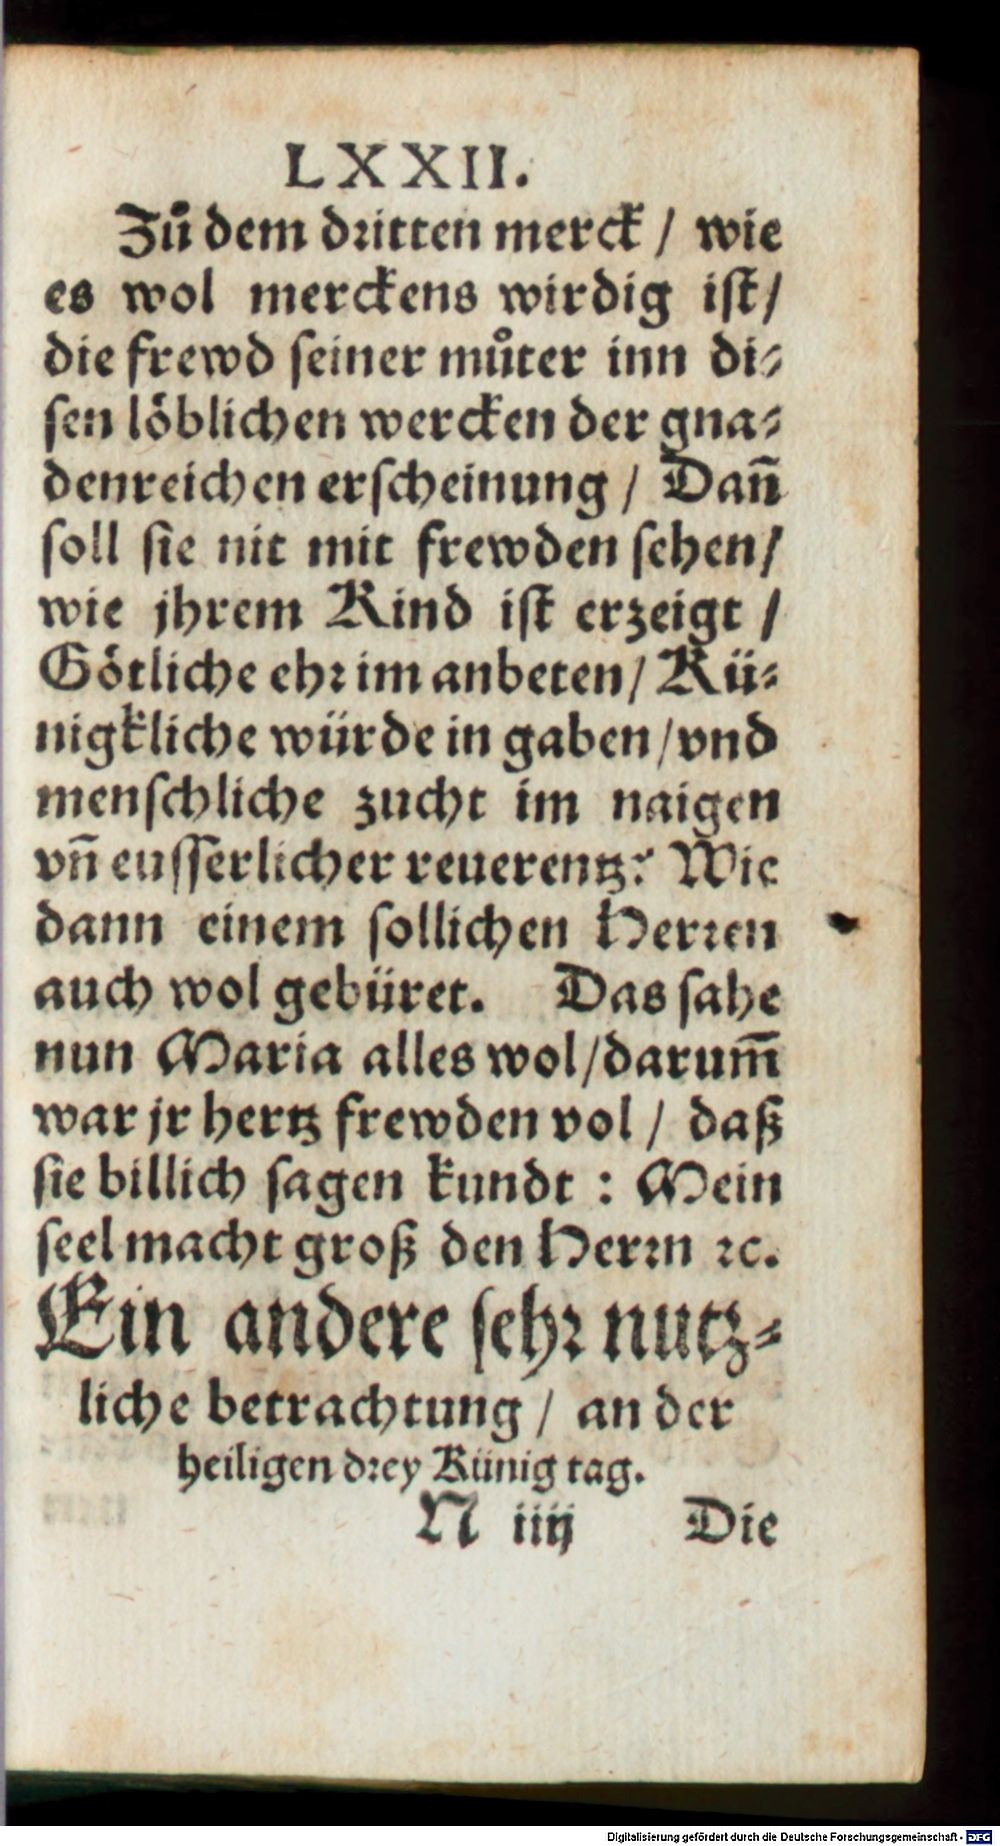 LXXII.
Zů dem dritten merck / wie
es wol merckens wirdig ist/
die frewd seiner můter inn di-
sen löblichen wercken der gna-
denreichen erscheinung / Dañ
soll sie nit mit frewden sehen/
wie jhrem Kind ist erzeigt /
Götliche ehr im anbeten/ Kü-
nigkliche würde in gaben/vnd
menschliche zucht im naigen
vñ eusserlicher reuerentz? Wie
dann einem sollichen Herren
auch wol gebüret. Das sahe
nun Maria alles wol/darum̃
war jr hertz frewden vol / daß
sie billich sagen kundt : Mein
seel macht groß den Herrn ꝛc.
Ein andere sehr nutz-
liche betrachtung / an der
heiligen drey Künig tag.
N iiij Die
Digitalisierung gefördert durch die Deutsche Forschungsgemeinschaft - DFG